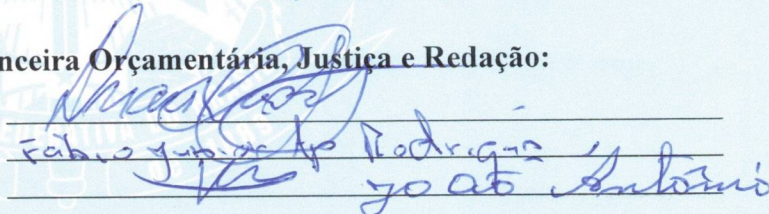 nceira Orçamentária, Justiça e Redação:
Fábio Junior Ap Rodrigues
João Antônio